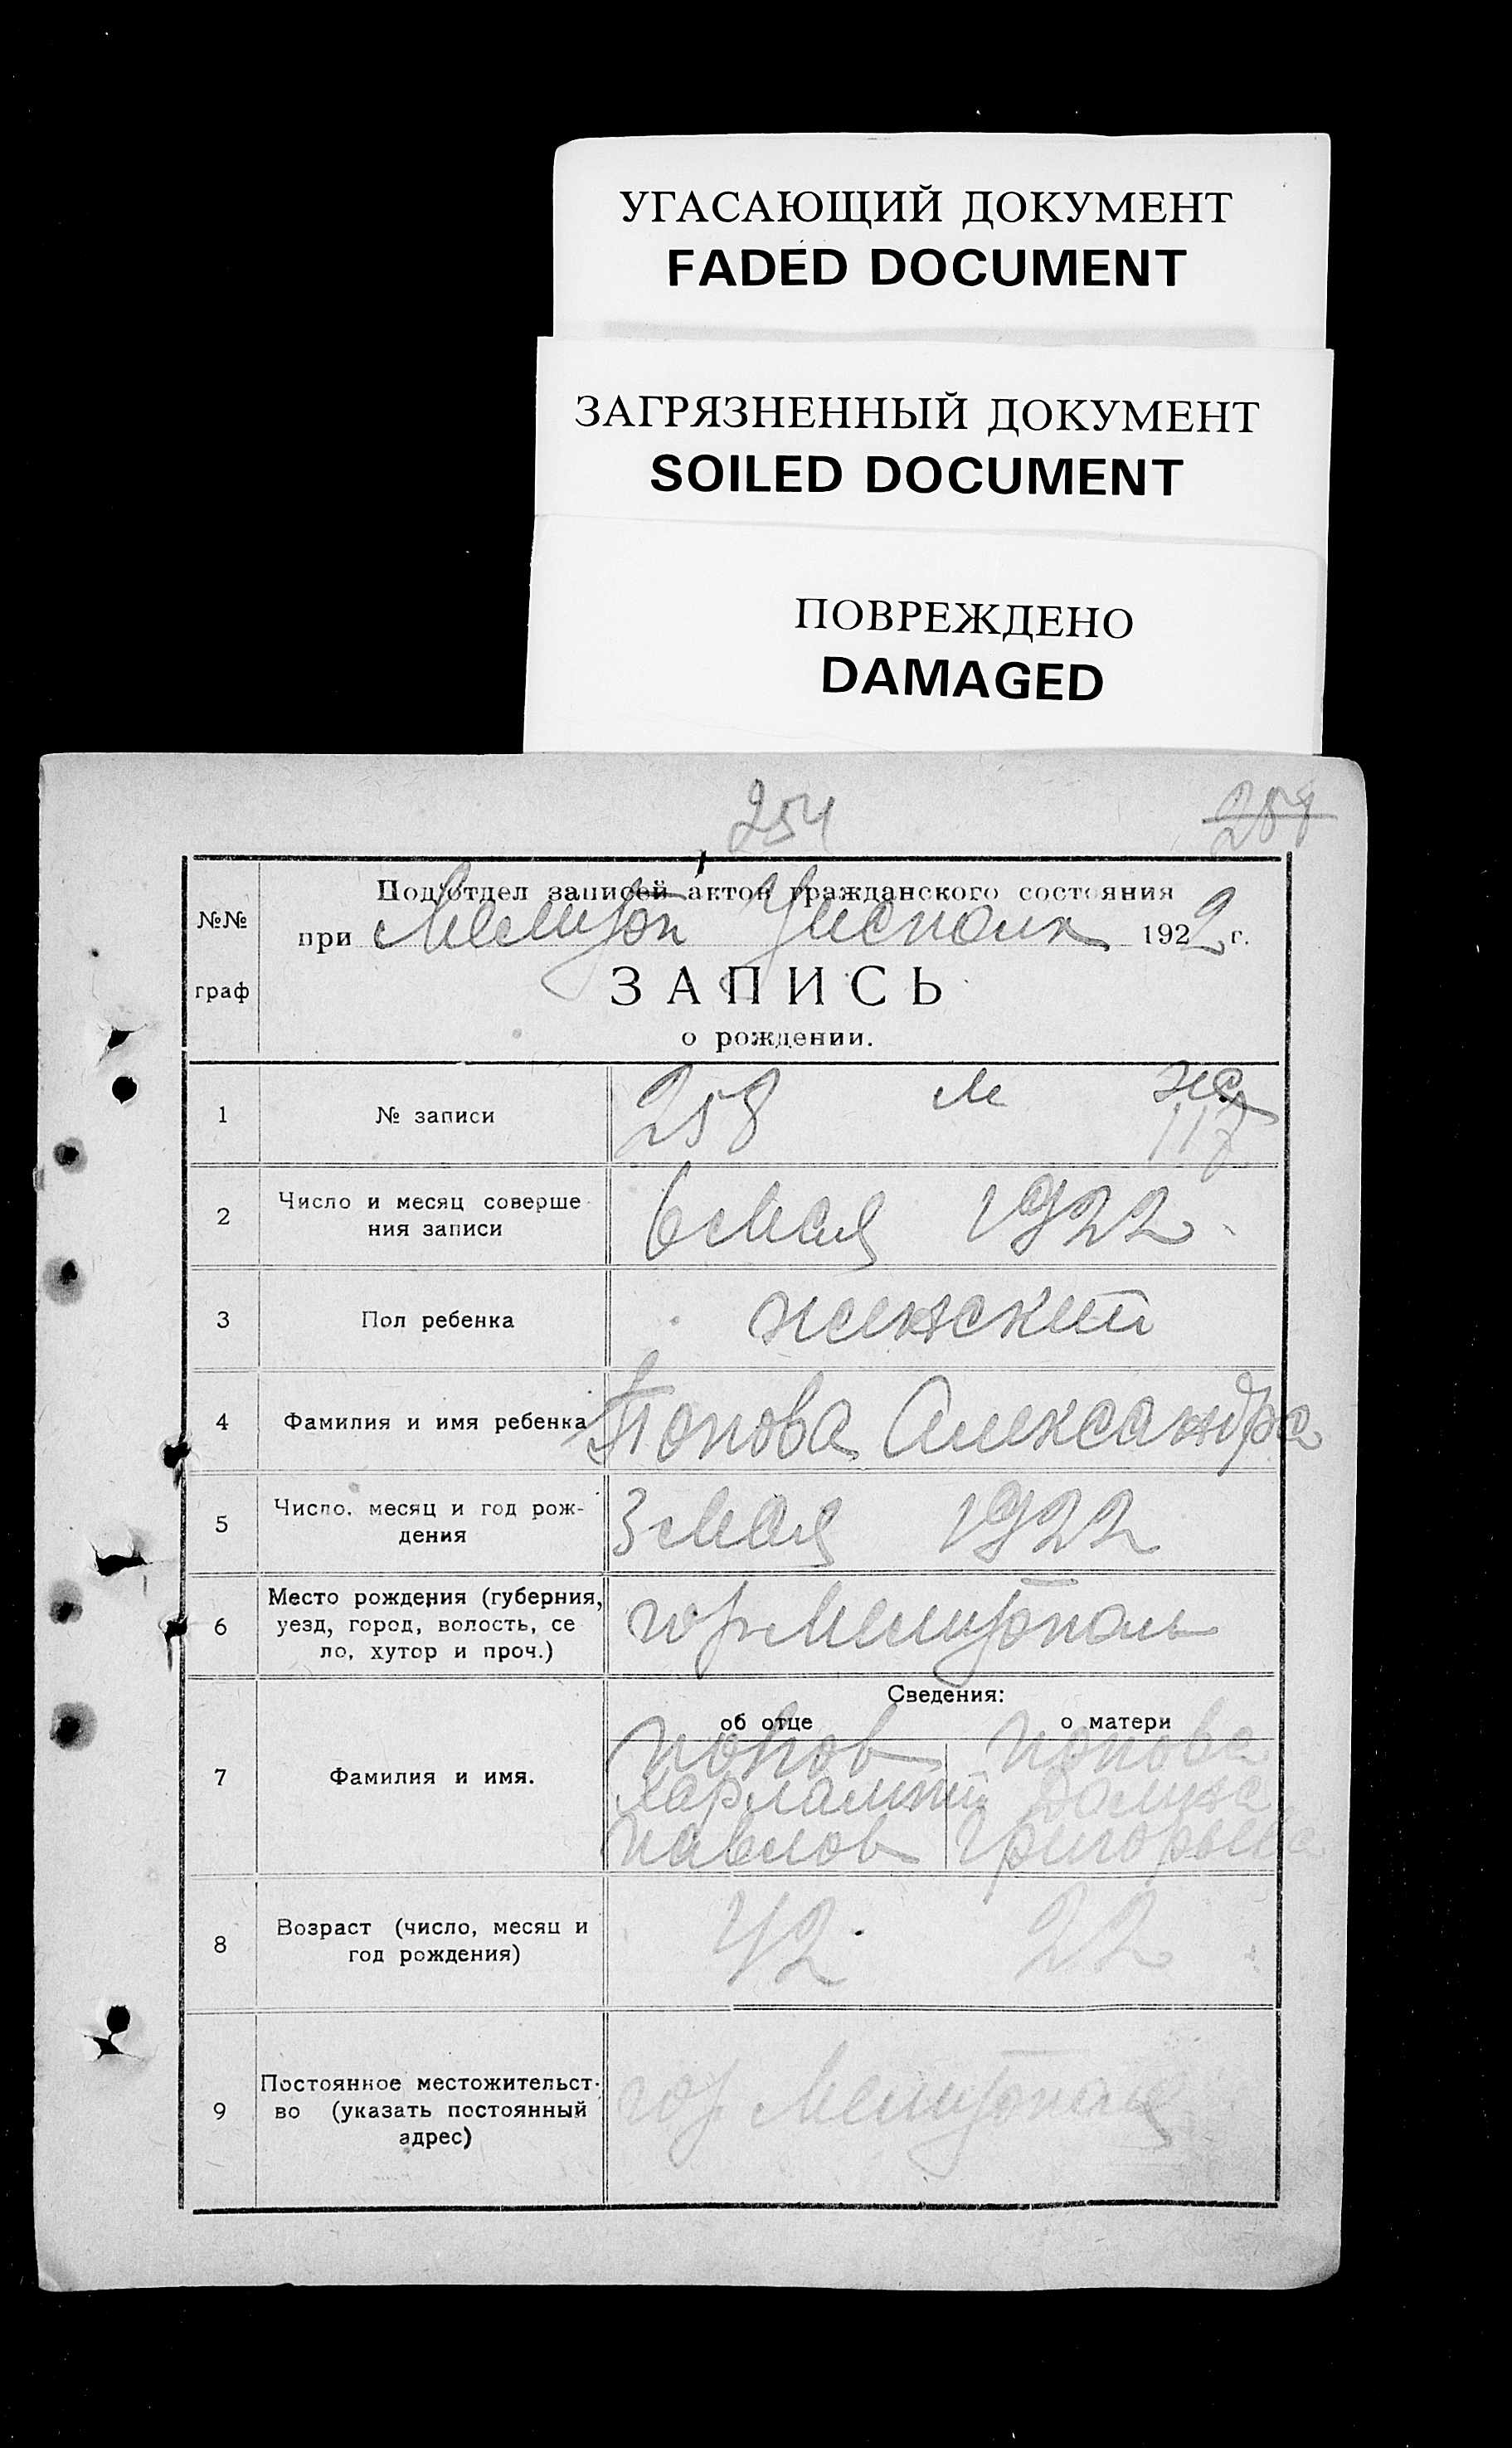 УГАСАЮЩИЙ ДОКУМЕНТ
FADED DOCUMENT
ЗАГРЯЗНЕННЫЙ ДОКУМЕНТ
SOILED DOCUMENT
ПОВРЕЖДЕНО
DAMAGED
254
Под'отдел записей актов гражданского состояния
№№
при Мелитоп Уисполк 1922 г.
граф
ЗАПИСЬ
о рождении.
1 № записи 258 м ж
117
2 Число и месяц соверше
ния записи
6 мая 1922
3 Пол ребенка женский
4 Фамилия и имя ребенка Попова Александра
5 Число. месяц и год рож-
дения
3 мая 1922
6 Место рождения (губерния,
уезд, город, волость, се
ло, хутор и проч.)
гор Мелитополь
Сведения:
об отце о матери
7 Фамилия и имя.
Попов Попова
Харлампий Домна
Павлов Григорьева
8 Возраст (число, месяц и
год рождения)
42 22
9 Постоянное местожительст-
во (указать постоянный
адрес)
гор Мелитополь